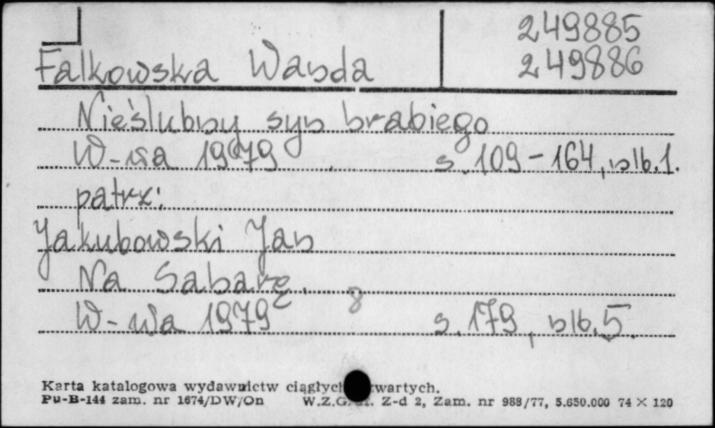 249885
249886
Falkowska Wanda
Nieślubny syn hrabiego
W-wa 1979 s. 109-164, nlb. 1.
patrz:
Jakubowski Jan
Na Saharę.
W-wa 1979 8 s. 179, nlb. 5.
Karta katalogowa wydawnictw ciągłych
Pu-B-144 zam. nr 1674/DW/On W.Z.G. Z-d 2, Zam. nr 988/77, 5.650.000 74 × 120